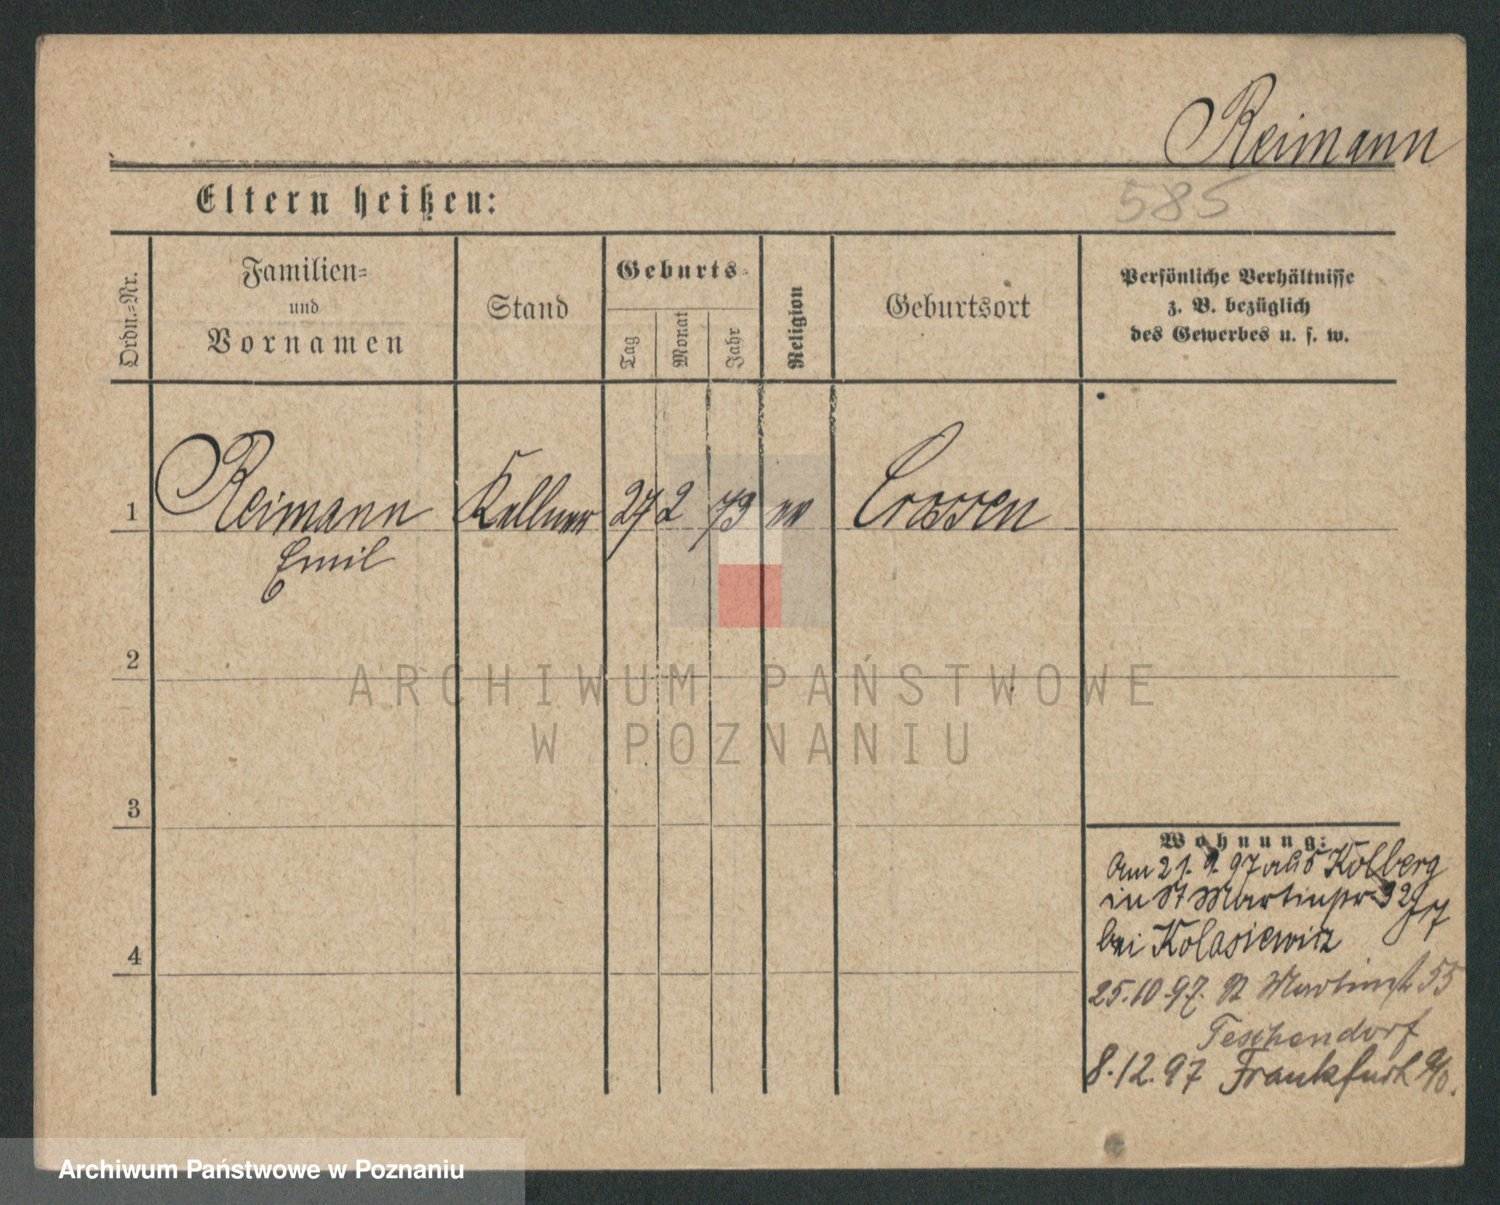 Reimann
585
Eltern heißen:
Ordn.=Nr.
Familien=
und
Vornamen
Stand
Geburts=
Tag
Monat
Jahr
Religion
Geburtsort
Persönliche Verhältnisse
z. B. bezüglich
des Gewerbes u. s. w.
1
Reimann
Emil
Kellner
27
2
73
ev
Crossen
2
ARCHIWUM PAŃSTWOWE
W POZNANIU
3
4
Wohnung:
Am 21. 9. 97 aus Kolberg
in St Martinstr 32
bei Kolasiewicz
25.10.97. St Martinst 55
Teschendorf
8.12.97 Frankfurt a/O.
Archiwum Państwowe w Poznaniu